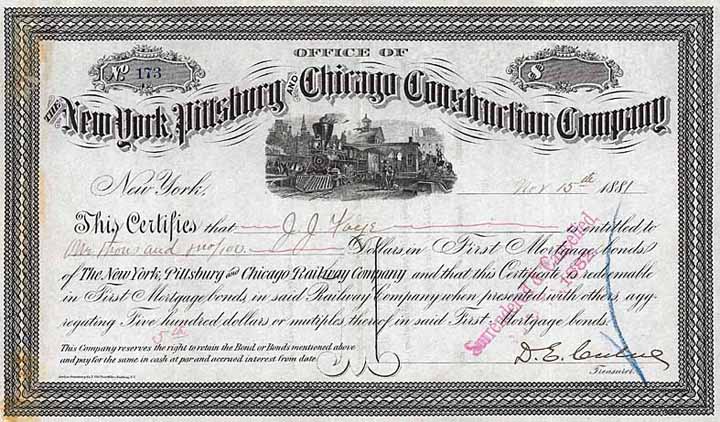 OFFICE OF
No 173
$
THE New York, Pittsburg AND Chicago Construction Company
New York, Nov 15th 1881
This Certifies that J. J. is entitled to
One thousand no/100 Dollars in First Mortgage bonds
of The New York, Pittsburg and Chicago Railway Company and that this Certificate is redeemable
in First Mortgage bonds, in said Railway Company when presented with others agg-
regating Five hundred dollars or mutiples thereof in said First Mortgage bonds.
Surrendered & Cancelled
1882
This Company reserves the right to retain the Bond or Bonds mentioned above
and pay for the same in cash at par and accrued interest from date
D. E.
Treasurer.